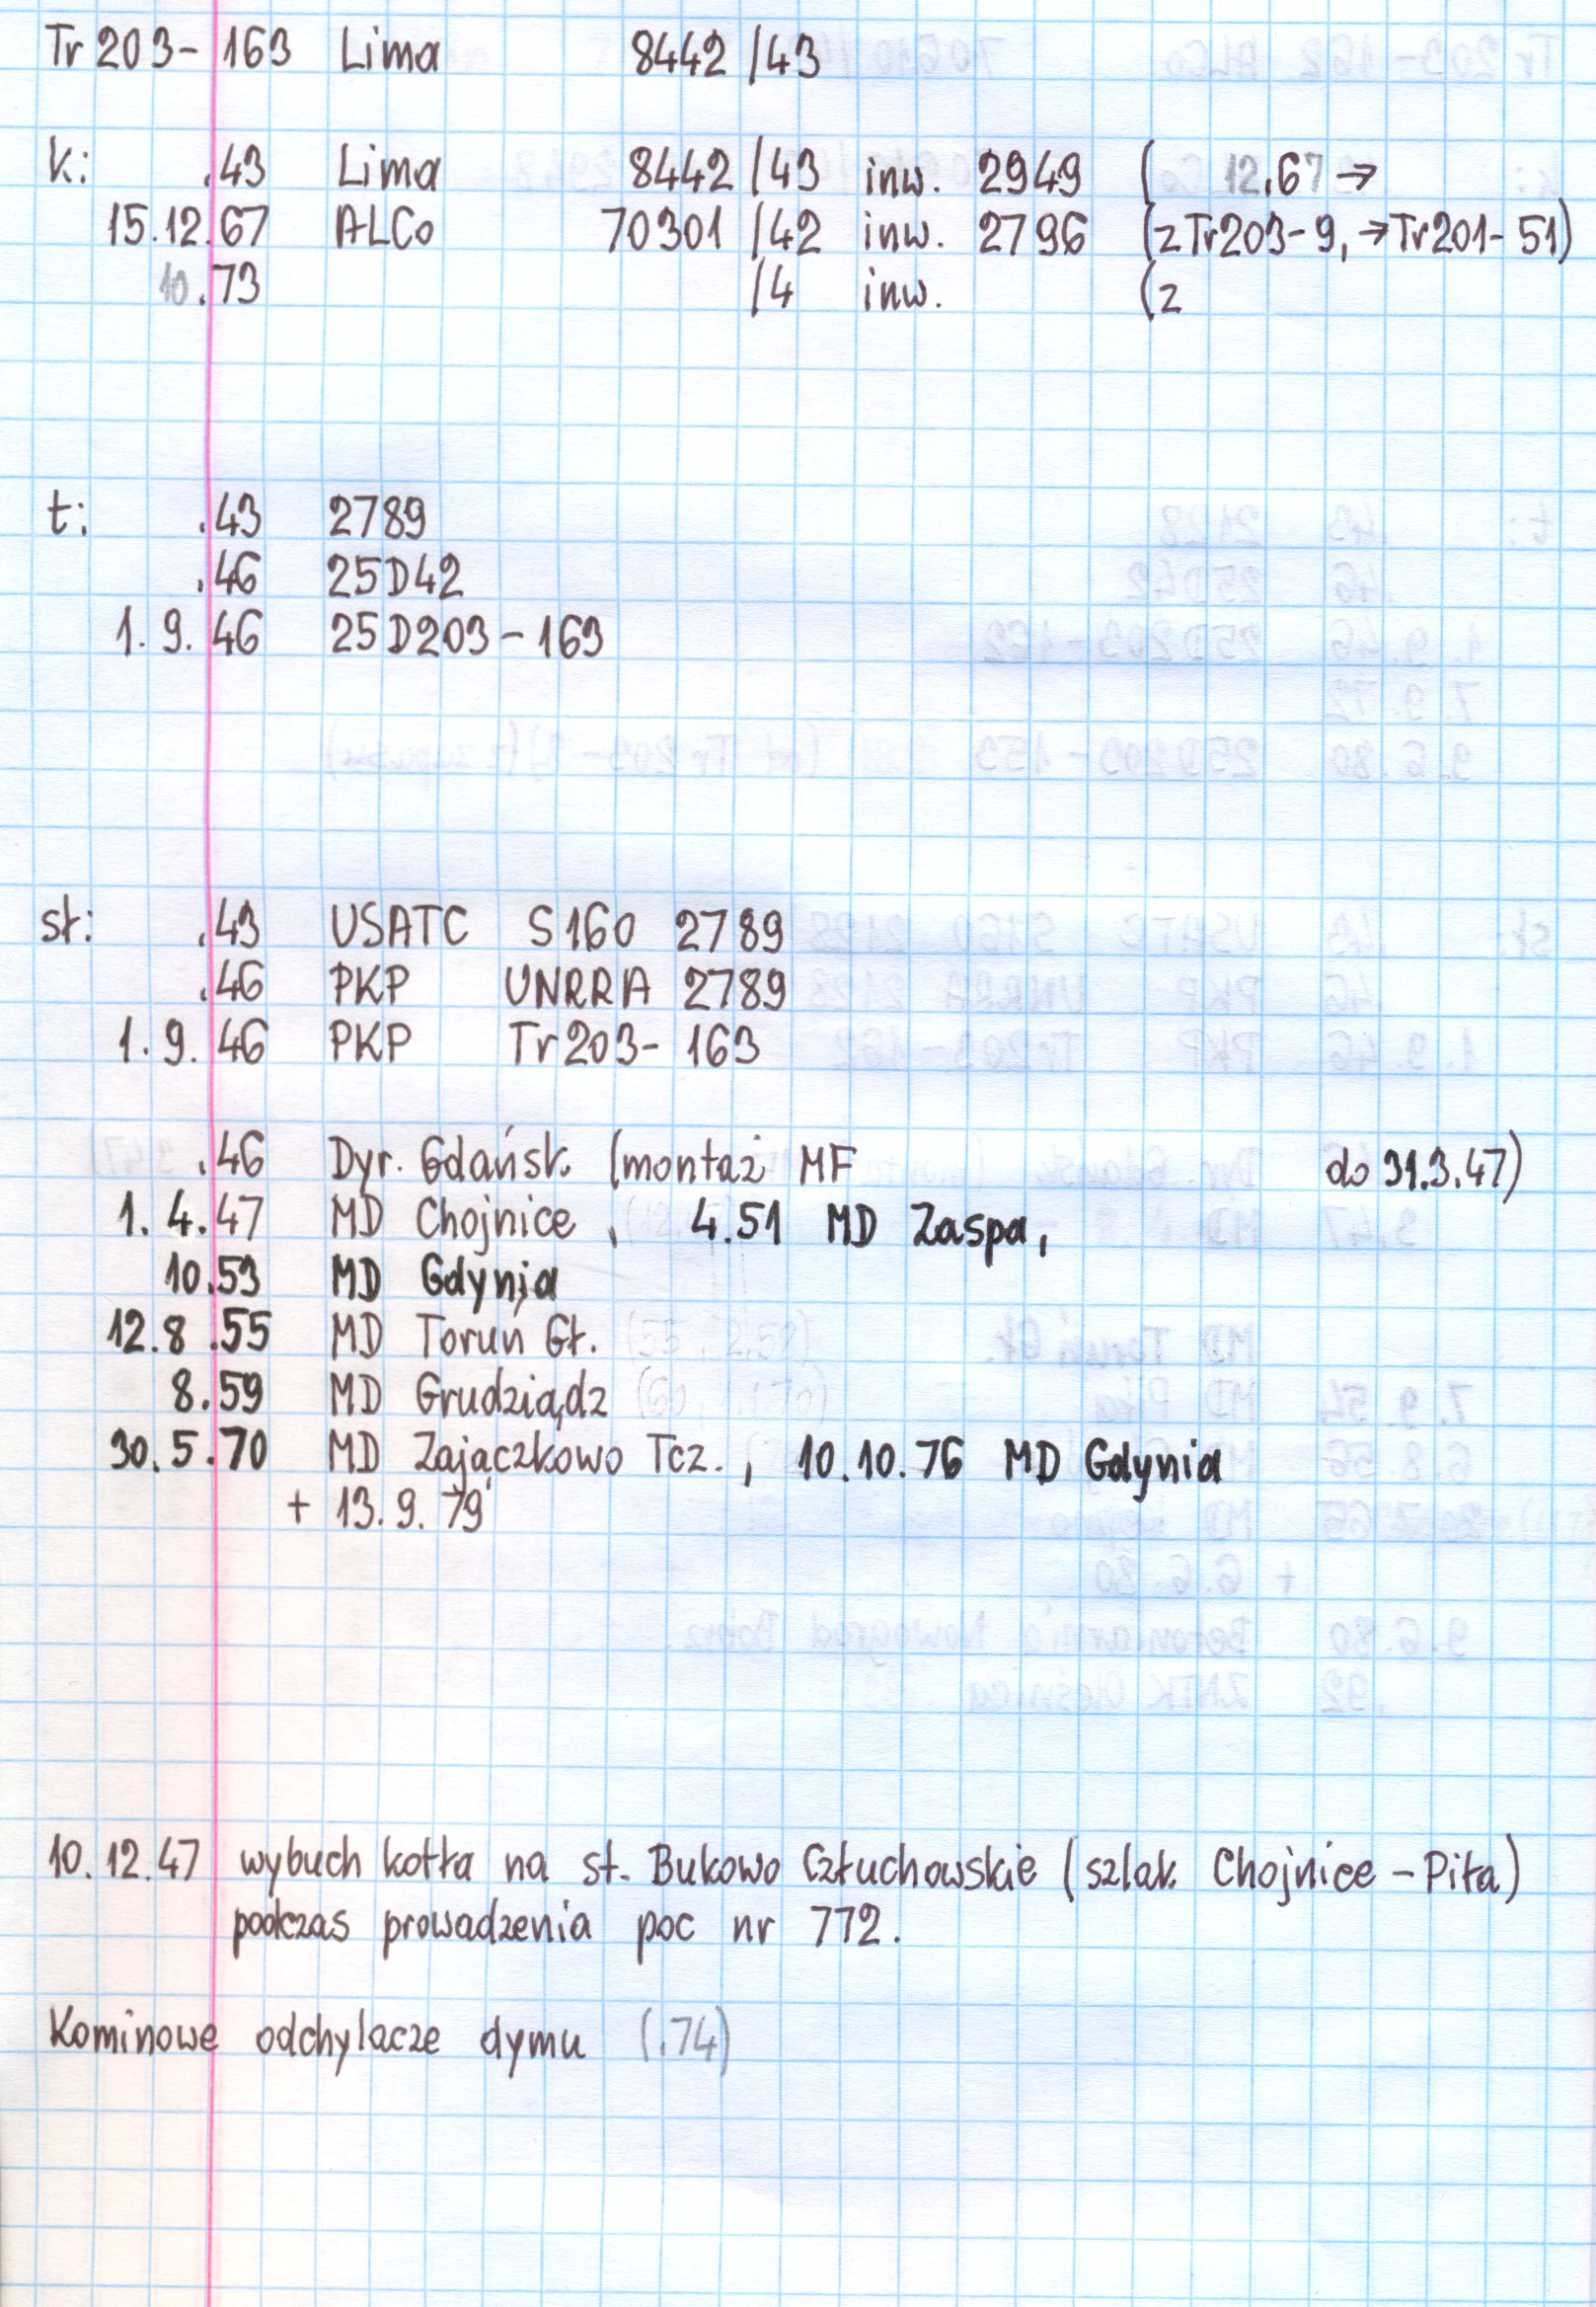 Tr 203- 163 Lima 8442 /43
k: .43 Lima 8442 /43 inw. 2949 ( 12.67 →
15.12.67 ALCo 70301 /42 inw. 2796 (z Tr203-9, →Tr201-51)
10.73 /4 inw. (z
t: .43 2789
.46 25D42
1. 9. 46 25D203-163
sł: .43 USATC S160 2789
.46 PKP UNRRA 2789
1. 9. 46 PKP Tr203- 163
.46 Dyr. Gdańsk (montaż MF do 31.3.47)
1. 4.47 MD Chojnice, 4.51 MD Zaspa,
10.53 MD Gdynia
12.8.55 MD Toruń Gł. (55, 2.58)
8.59 MD Grudziądz (60, 1.1.70)
30.5.70 MD Zajączkowo Tcz., 10.10.76 MD Gdynia
+ 13. 9. 79
10.12.47 wybuch kotła na st. Bukowo Człuchowskie (szlak Chojnice - Piła)
podczas prowadzenia poc nr 772.
Kominowe odchylacze dymu (.74)